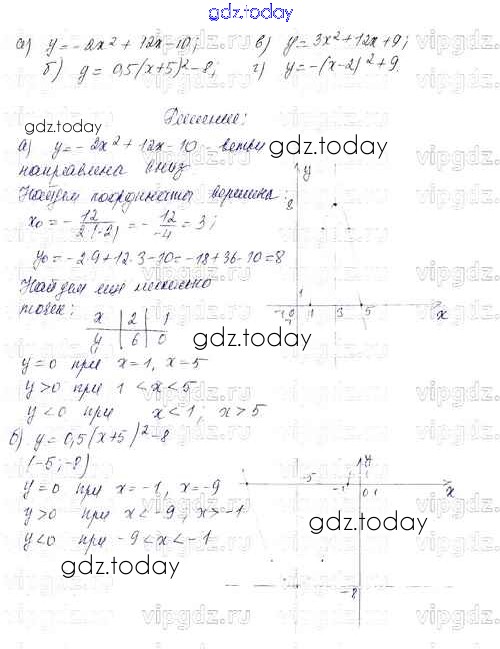 gdz.today
а) y = -2x² + 12x - 10; в) y = 3x² + 12x + 9;
б) y = 0,5(x+5)² - 8; г) y = -(x-2)² + 9.
Решение:
а) y = -2x² + 12x - 10 - ветви
направлена вниз
Найдем координаты вершины:
x₀ = - 12/2·(-2) = - 12/-4 = 3;
y₀ = -2·9 + 12·3 - 10 = -18 + 36 - 10 = 8
Найдем еще несколько
точек:
x | 2 | 1
y | 6 | 0
y = 0 при x = 1, x = 5
y > 0 при 1 < x < 5
y < 0 при x < 1; x > 5
y
8
1
-1 0 1 3 5 x
-1
б) y = 0,5(x+5)² - 8
(-5; -8)
y = 0 при x = -1, x = -9
y > 0 при x < -9; x > -1
y < 0 при -9 < x < -1
y
-5 -1 0 1 x
-8
gdz.today
gdz.today
gdz.today
gdz.today
gdz.today
vipgdz.ru